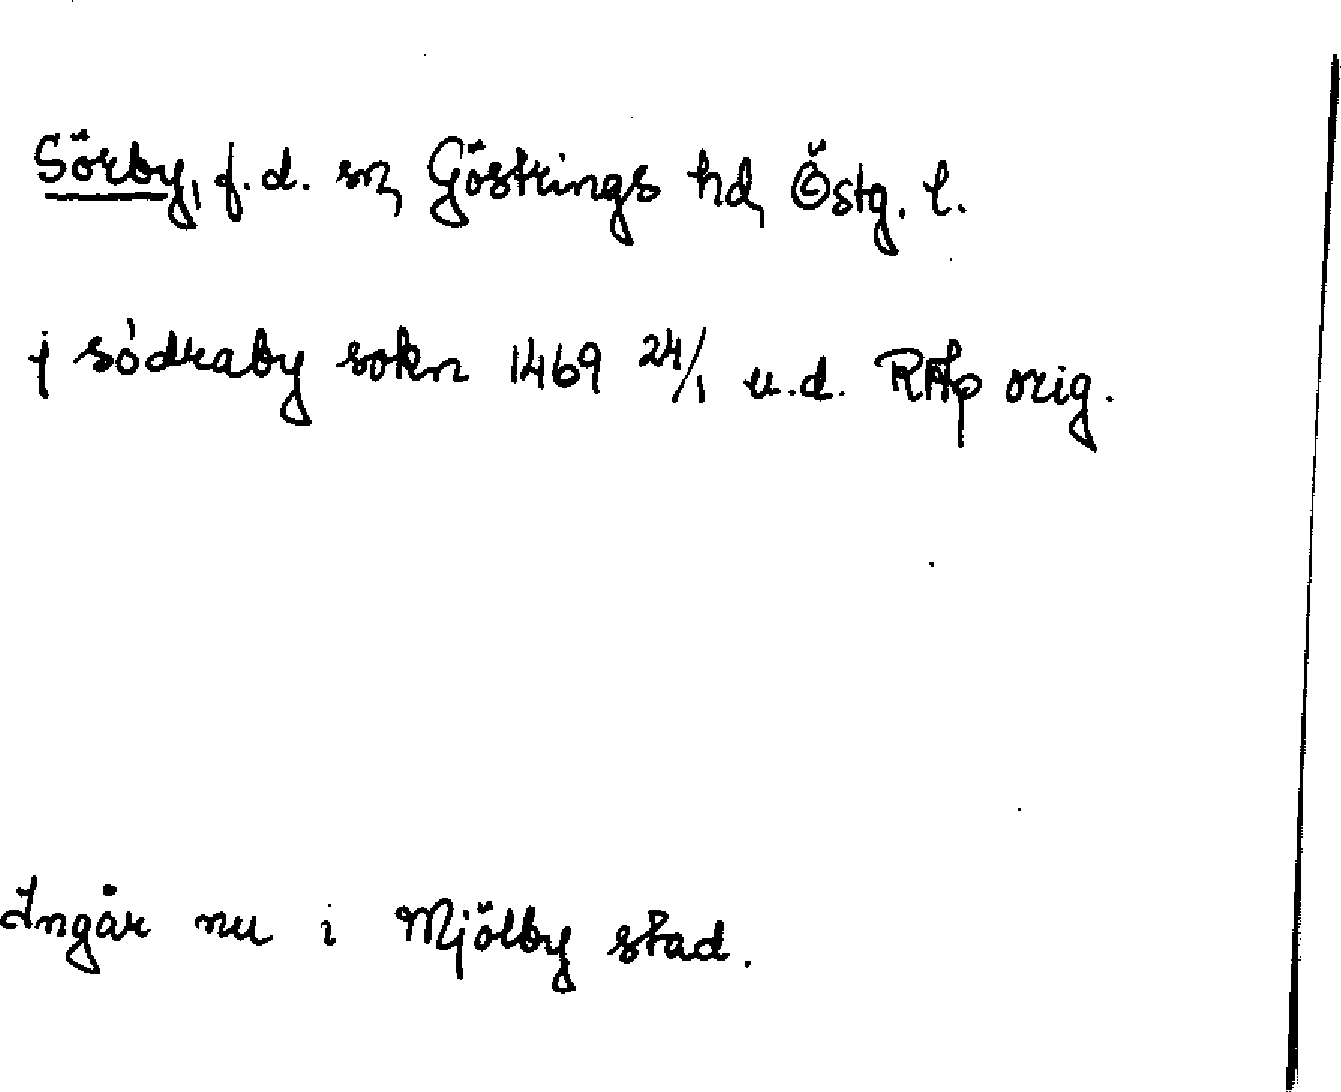 Sörby, f.d. sn, Göstrings hd, Östg. l.
j södraby sokn 1469 24/1 u.d. RAp orig.
Ingår nu i Mjölby stad.